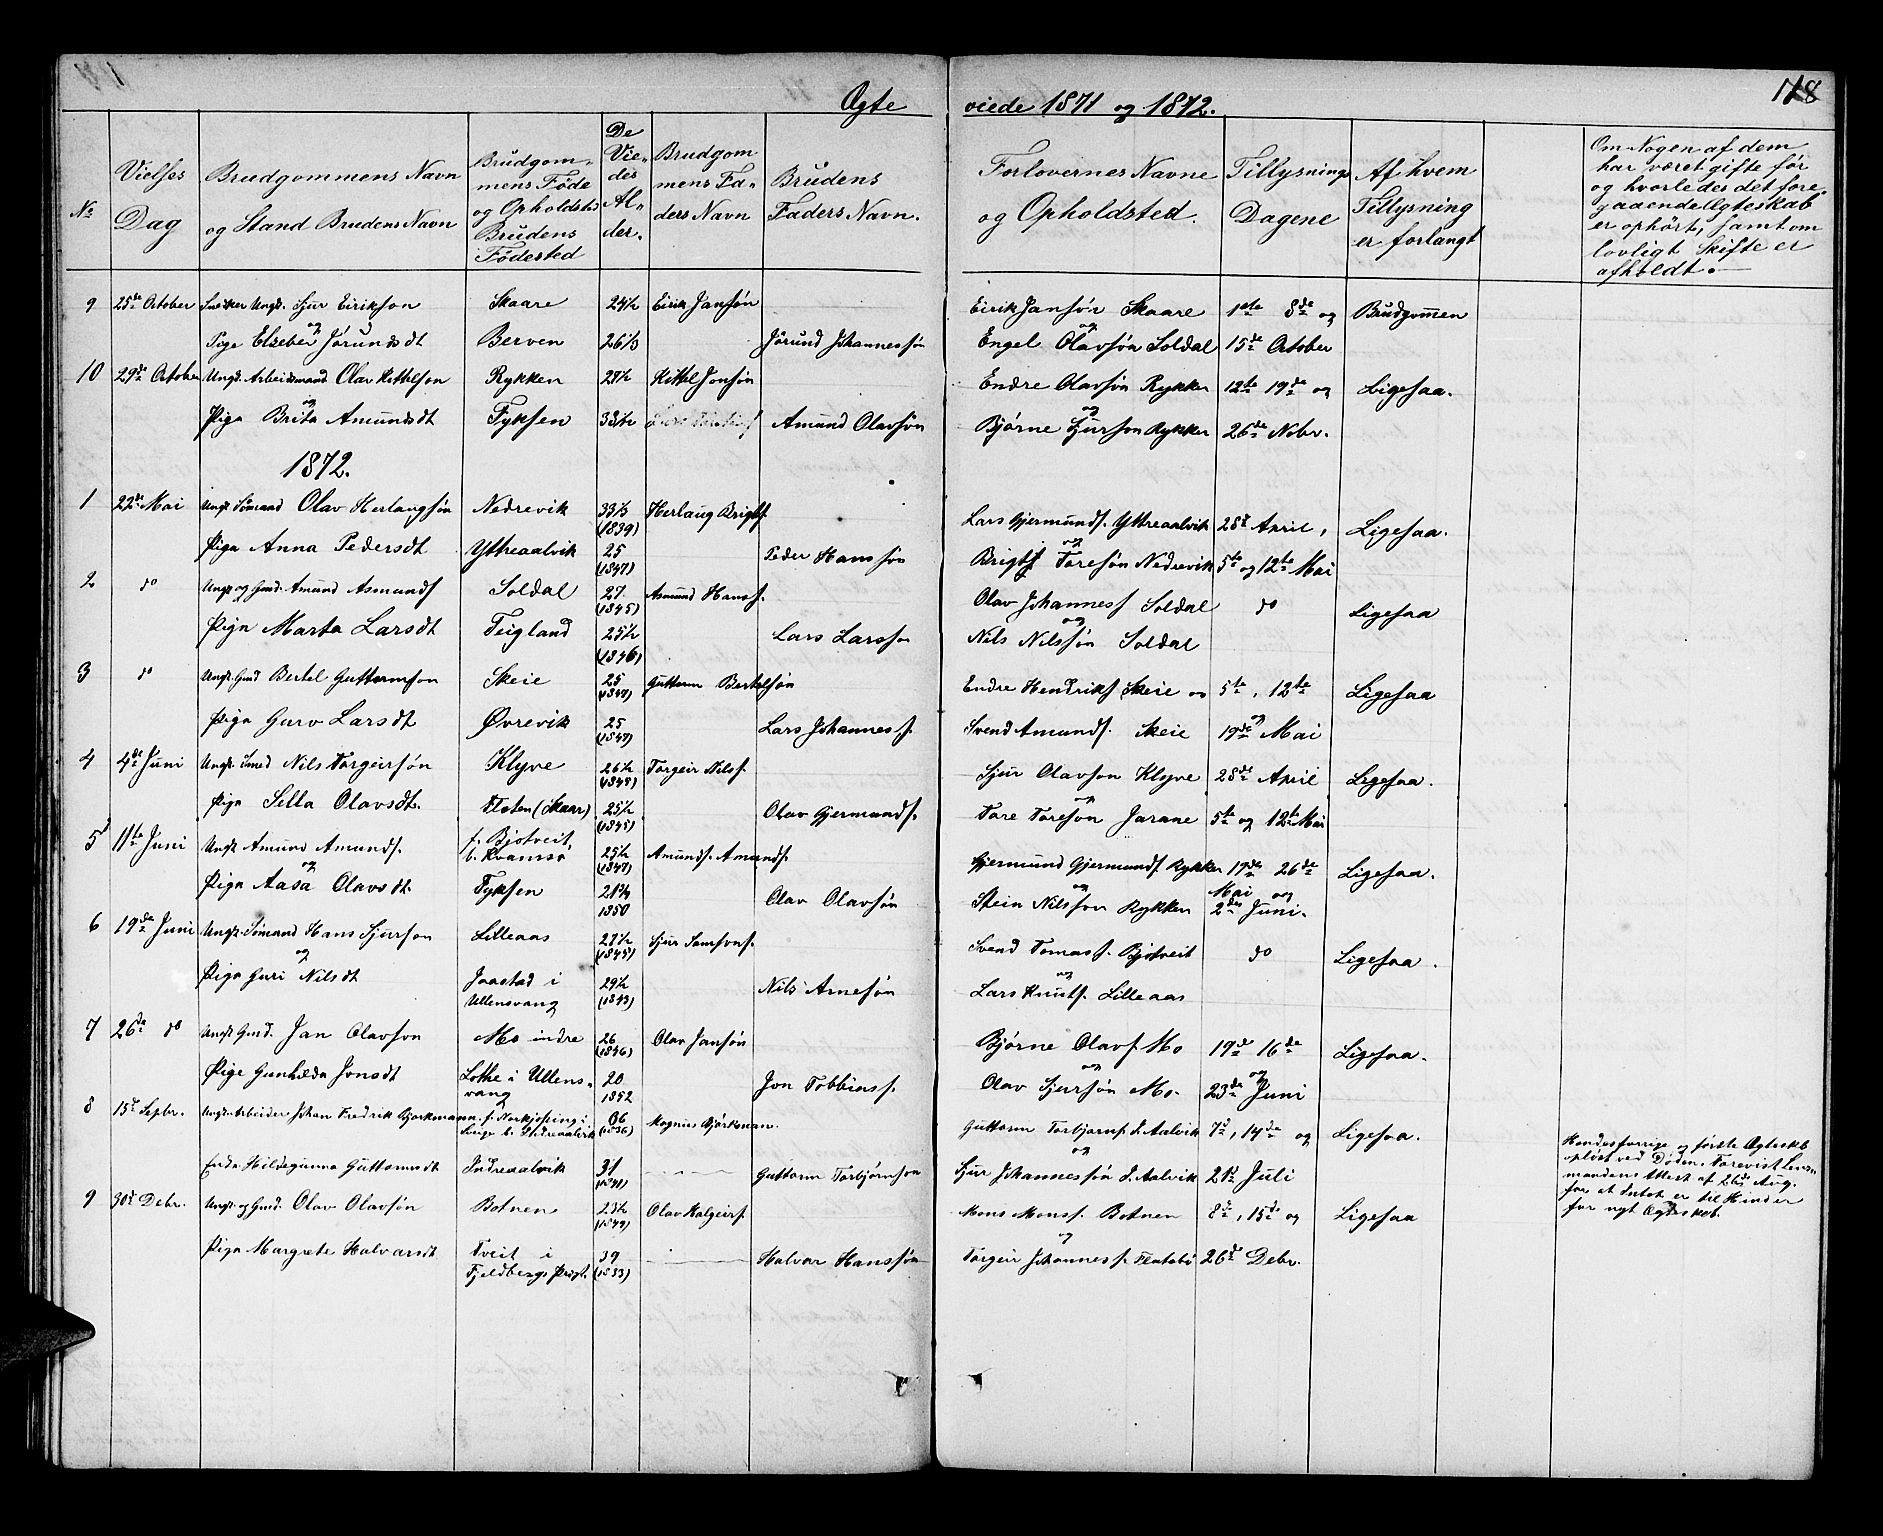 Ægte viede 1871 og 1872. 118
No
Vielses Dag
Brudgommens Navn og Stand Brudens Navn
Brudgommens Føde og Opholdsted Brudens Fødested
De Viedes Alder.
Brudgommens Faders Navn
Brudens Faders Navn.
Forlovernes Navne og Opholdsted.
Tillysnings Dagene
Af hvem Tillysning er forlangt
Om Nogen af dem har været gifte før og hvorledes det foregaaende Ægteskab er ophørt, samt om lovligt Skifte er afholdt.
9 25de October Snekker Ungk. Sjur Eirikson Skaare 24½ Eirik Jansøn Eirik Jansøn Skaare 1ste 8de og Brudgommen
og
Pige Elseber Jørundsdt Berven 26⅓ Jørund Johannessøn Engel Olavsøn Soldal 15de October
10 29de October Ungk. Arbeidsmand Olav Kittelson Rykken 27½ Kittel Jonsøn Endre Olavsøn Rykken 12te 19de og Ligesaa.
og
Piga Brita Amundsdt Fyksen 33½ Amund Olavsøn Bjørne Sjurson Rykken 26de Nobr.
1872.
1 22de Mai Ungk. Sømand Olav Herlaugsøn Nedrevik 33⅓ (1839) Herlaug Brigtsf. Lars Gjermundf. Ytreaalvik 28de April, Ligesaa.
og
Piga Anna Pedersdt Ytreaalvik 25 (1847) Peder Hanssøn Brigtf Toresøn Nedrevik 5te og 12te Mai
2 do Ungk. og Gmd. Amund Asmundf Soldal 27. (1845) Asmund Hansf. Olav Johannesf Soldal do Ligesaa
og
Piga Marta Larsdt Teigland 25½ (1846) Lars Larsson Nils Nilssøn Soldal
3 do Ungk. Gmd Bertel Guttormson Skeie 25 (1847) Guttorm Bertelsøn Endre Hendriksf Skeie og 5te, 12te Ligesaa
og
Piga Guro Larsdt Øvrevik 25 (1847) Lars Johannesf. Svend Amundf. Skeie 19de Mai
4 4de Juni Ungk. Smed Nils Torgeirsøn Klyve 26½ Torgeir Nilsf. Sjur Olavson Klyve 28de April Ligesaa.
og
Piga Silla Olavsdt. Floten (Skaar) 25½ Olav Gjermundf. Tore Toreson Jarane 5te og 12te Mai
5 11te Juni Ungk Amund Amundf. f. Bjotveit, b. Kvamsø 25½ (1847) Amundf. Amundf. Gjermund Gjermundf Rykken 19de 26de Ligesaa.
og Mai og
Piga Aasa Olavsdt. Fyksen 21¾ 1850 Olav Olavsøn Stein Nilsson Rykken 2den Juni.
6 19de Juni Ungk. Sømand Hans Sjurson Lilleaas 27½ (1845) Sjur Samsonf. Svend Tomasf. Bjotveit do Ligesaa.
og
Piga Guri Nilsdt Jaastad i Ullensvang 29½ (1843) Nils Arnesøn Lars Knutf. Lilleaas
7 26de do Ungk. Gmd. Jan Olavson Mo indre 26 (1846) Olav Jansøn Bjørne Olavf. Mo 19de 16de Ligesaa.
og
Pige Gunhilda Jonsdt Lothe i Ullensvang 20 1852 Jon Tobbiasf. Olav Sjursøn Mo. 23de Juni
8 15de Septbr. Ungk. Arbeider Johan Fredrik Bjørkmann. f. Norkjøping i Sverige b. Indreaalvik 36 (1836) Magnus Bjørkman. Guttorm Torbjørnf. I. Aalvik 7de, 14de og Ligesaa.
og
Enke Hildegunna Guttormsdt Indreaalvik 31 (1841) Guttorm Torbjørnson Sjur Johannessøn I. Aalvik 21de Juli
Hendes forrige og første Ægteskab opløst ved Døden. Forevist Lensmandens Attest af 26de Aug. for at Intet er til Hinder for nyt Ægteskab.
9 30de Debr. Ungk. og Gmd. Olav Olavsøn Botnen 23½ (1849) Olav Halgeirf. Mons Monsf. Botnen 8de, 15de og Ligesaa
og
Piga Margrete Halvarsdt Tveit i Fjeldbergs Prgt. 39 (1833) Halvar Hanssøn Torgeir Johannesf. Flatebø 26de Debr.